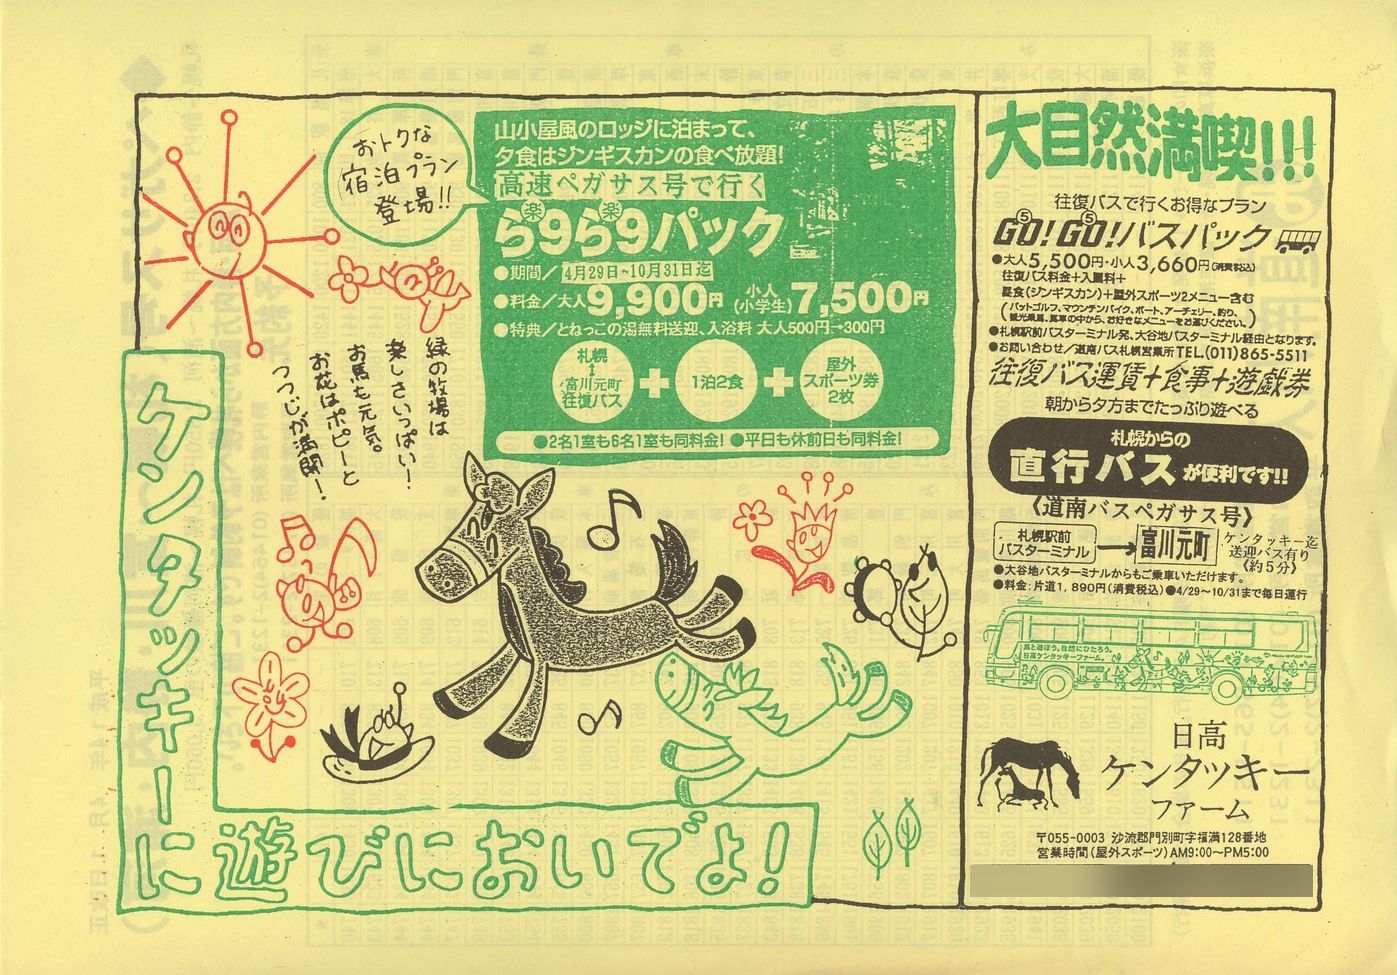 おトクな
宿泊プラン
登場!!
山小屋風のロッジに泊まって、
夕食はジンギスカンの食べ放題!
高速ペガサス号で行く
楽 楽
ら9ら9パック
●期間／4月29日~10月31日迄
●料金／大人9,900円 小人(小学生)7,500円
●特典／とねっこの湯無料送迎、入浴料 大人500円→300円
札幌
↕
富川元町
往復バス
+
1泊2食
+
屋外
スポーツ券
2枚
●2名1室も6名1室も同料金! ●平日も休前日も同料金!
緑の牧場は
楽しさいっぱい!
お馬も元気。
お花はポピーと
つつじが満開!
ケンタッキー
に遊びにおいでよ!
大自然満喫!!!
往復バスで行くお得なプラン
5 5
GO!GO!バスパック
●大人5,500円・小人3,660円(消費税込)
往復バス料金+入園料+
昼食(ジンギスカン)+屋外スポーツ2メニュー含む
(パットゴルフ、マウンテンバイク、ボート、アーチェリー、釣り、
観光乗馬、馬車の中から、お好きなメニューをお選びください。)
●札幌駅前バスターミナル発、大谷地バスターミナル経由となります。
●お問い合わせ／道南バス札幌営業所 TEL.(011)865-5511
往復バス運賃+食事+遊戯券
朝から夕方までたっぷり遊べる
札幌からの
直行バスが便利です!!
《道南バスペガサス号》
札幌駅前
バスターミナル
→
富川元町
ケンタッキー迄
送迎バス有り
《約5分》
●大谷地バスターミナルからもご乗車いただけます。
●料金：片道1,890円(消費税込) ●4/29〜10/31まで毎日運行
馬と遊ぼう。自然にひたろう。
日高ケンタッキーファーム。
日高
ケンタッキー
ファーム
〒055-0003 沙流郡門別町字福満128番地
営業時間(屋外スポーツ)AM9:00〜PM5:00